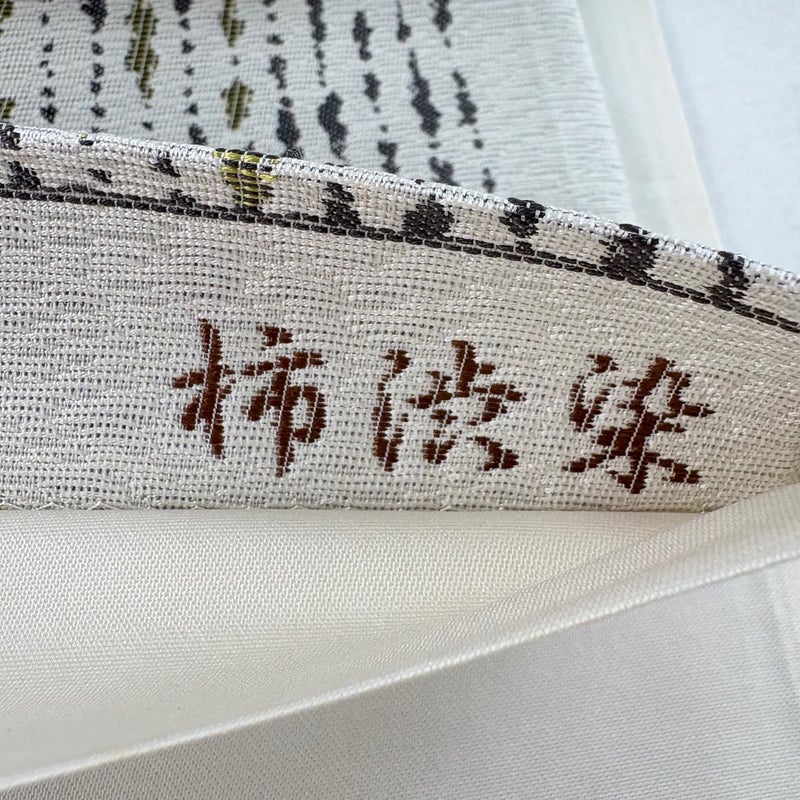 柿渋染